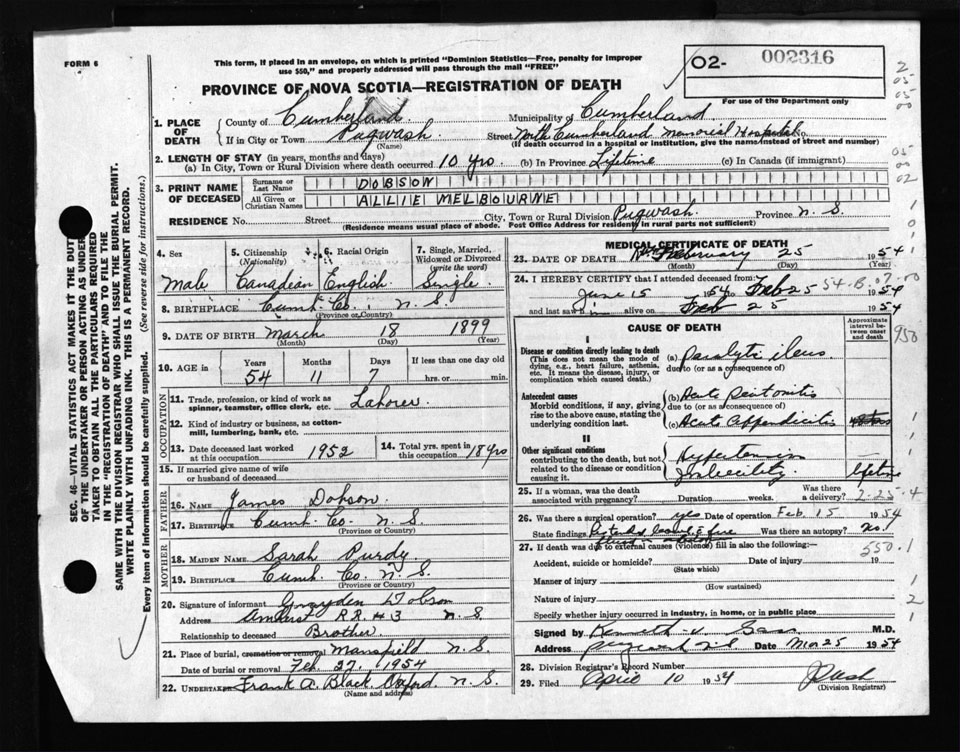 FORM 6
This form, if placed in an envelope, on which is printed "Dominion Statistics—Free, penalty for improper
use $50," and properly addressed will pass through the mail "FREE"
O2- 002316
For use of the Department only
PROVINCE OF NOVA SCOTIA—REGISTRATION OF DEATH
1. PLACE OF DEATH
County of Cumberland Municipality of Cumberland
If in City or Town Pugwash Street North Cumberland Memorial Hospital No.
(Name) (If death occurred in a hospital or institution, give the name instead of street and number)
2. LENGTH OF STAY (in years, months and days)
(a) In City, Town or Rural Division where death occurred 10 yrs. (b) In Province Lifetime (c) In Canada (if immigrant)
3. PRINT NAME OF DECEASED
Surname or Last Name DOBSON
All Given or Christian Names ALLIE MELBOURNE
RESIDENCE No. Street City, Town or Rural Division Pugwash Province N. S.
(Residence means usual place of abode. Post Office Address for residency in rural parts not sufficient)
4. Sex Male
5. Citizenship (Nationality) Canadian
6. Racial Origin English
7. Single, Married, Widowed or Divorced (write the word) Single
8. BIRTHPLACE Cumb. Co., N. S.
(Province or Country)
9. DATE OF BIRTH March 18 1899
(Month) (Day) (Year)
10. AGE in Years Months Days If less than one day old
54 11 7 hrs. or min.
OCCUPATION
11. Trade, profession, or kind of work as spinner, teamster, office clerk, etc. Laborer
12. Kind of industry or business, as cotton-mill, lumbering, bank, etc.
13. Date deceased last worked at this occupation 1952
14. Total yrs. spent in this occupation 18 yrs
15. If married give name of wife or husband of deceased
FATHER
16. Name James Dobson
17. Birthplace Cumb. Co. N. S.
(Province or Country)
MOTHER
18. Maiden Name Sarah Purdy
19. Birthplace Cumb. Co. N. S.
(Province or Country)
20. Signature of informant Grayden Dobson
Address Amherst R R #3 N. S.
Relationship to deceased Brother
21. Place of burial, cremation or removal Mansfield N. S.
Date of burial or removal Feb. 27, 1954
22. Undertaker Frank A. Black, Oxford, N. S.
(Name and address)
MEDICAL CERTIFICATE OF DEATH
23. DATE OF DEATH February 25 1954
(Month) (Day) (Year)
24. I HEREBY CERTIFY that I attended deceased from:
June 15 1954 to Feb 25 1954
and last saw him alive on Feb 25 1954
54-B.
CAUSE OF DEATH
Approximate interval between onset and death
I
Disease or condition directly leading to death
(This does not mean the mode of dying, e.g., heart failure, asthenia, etc. It means the disease, injury, or complication which caused death.)
(a) Paralytic ileus
due to (or as a consequence of)
Antecedent causes
Morbid conditions, if any, giving rise to the above cause, stating the underlying condition last.
(b) Acute Peritonitis
due to (or as a consequence of)
(c) Acute appendicitis
II
Other significant conditions
contributing to the death, but not related to the disease or condition causing it.
Hypertension
Imbecility lifetime
25. If a woman, was the death associated with pregnancy? Duration weeks. Was there a delivery? 2-25-4
26. Was there a surgical operation? yes Date of operation Feb. 15 1954
State findings Was there an autopsy? No
27. If death was due to external causes (violence) fill in also the following:—
Accident, suicide or homicide? Date of injury 19
(State which)
Manner of injury
(How sustained)
Nature of injury
Specify whether injury occurred in industry, in home, or in public place
Signed by Kenneth V. Gass M.D.
Address Pugwash N.S. Date Mar 25 1954
28. Division Registrar's Record Number
29. Filed April 10 1954
(Division Registrar)
950
550.1
SEC. 46—VITAL STATISTICS ACT MAKES IT THE DUTY
OF THE UNDERTAKER OR PERSON ACTING AS UNDER-
TAKER TO OBTAIN ALL THE PARTICULARS REQUIRED
IN THE "REGISTRATION OF DEATH" AND TO FILE THE
SAME WITH THE DIVISION REGISTRAR WHO SHALL ISSUE THE BURIAL PERMIT.
WRITE PLAINLY WITH UNFADING INK. THIS IS A PERMANENT RECORD.
Every item of Information should be carefully supplied. (See reverse side for instructions.)